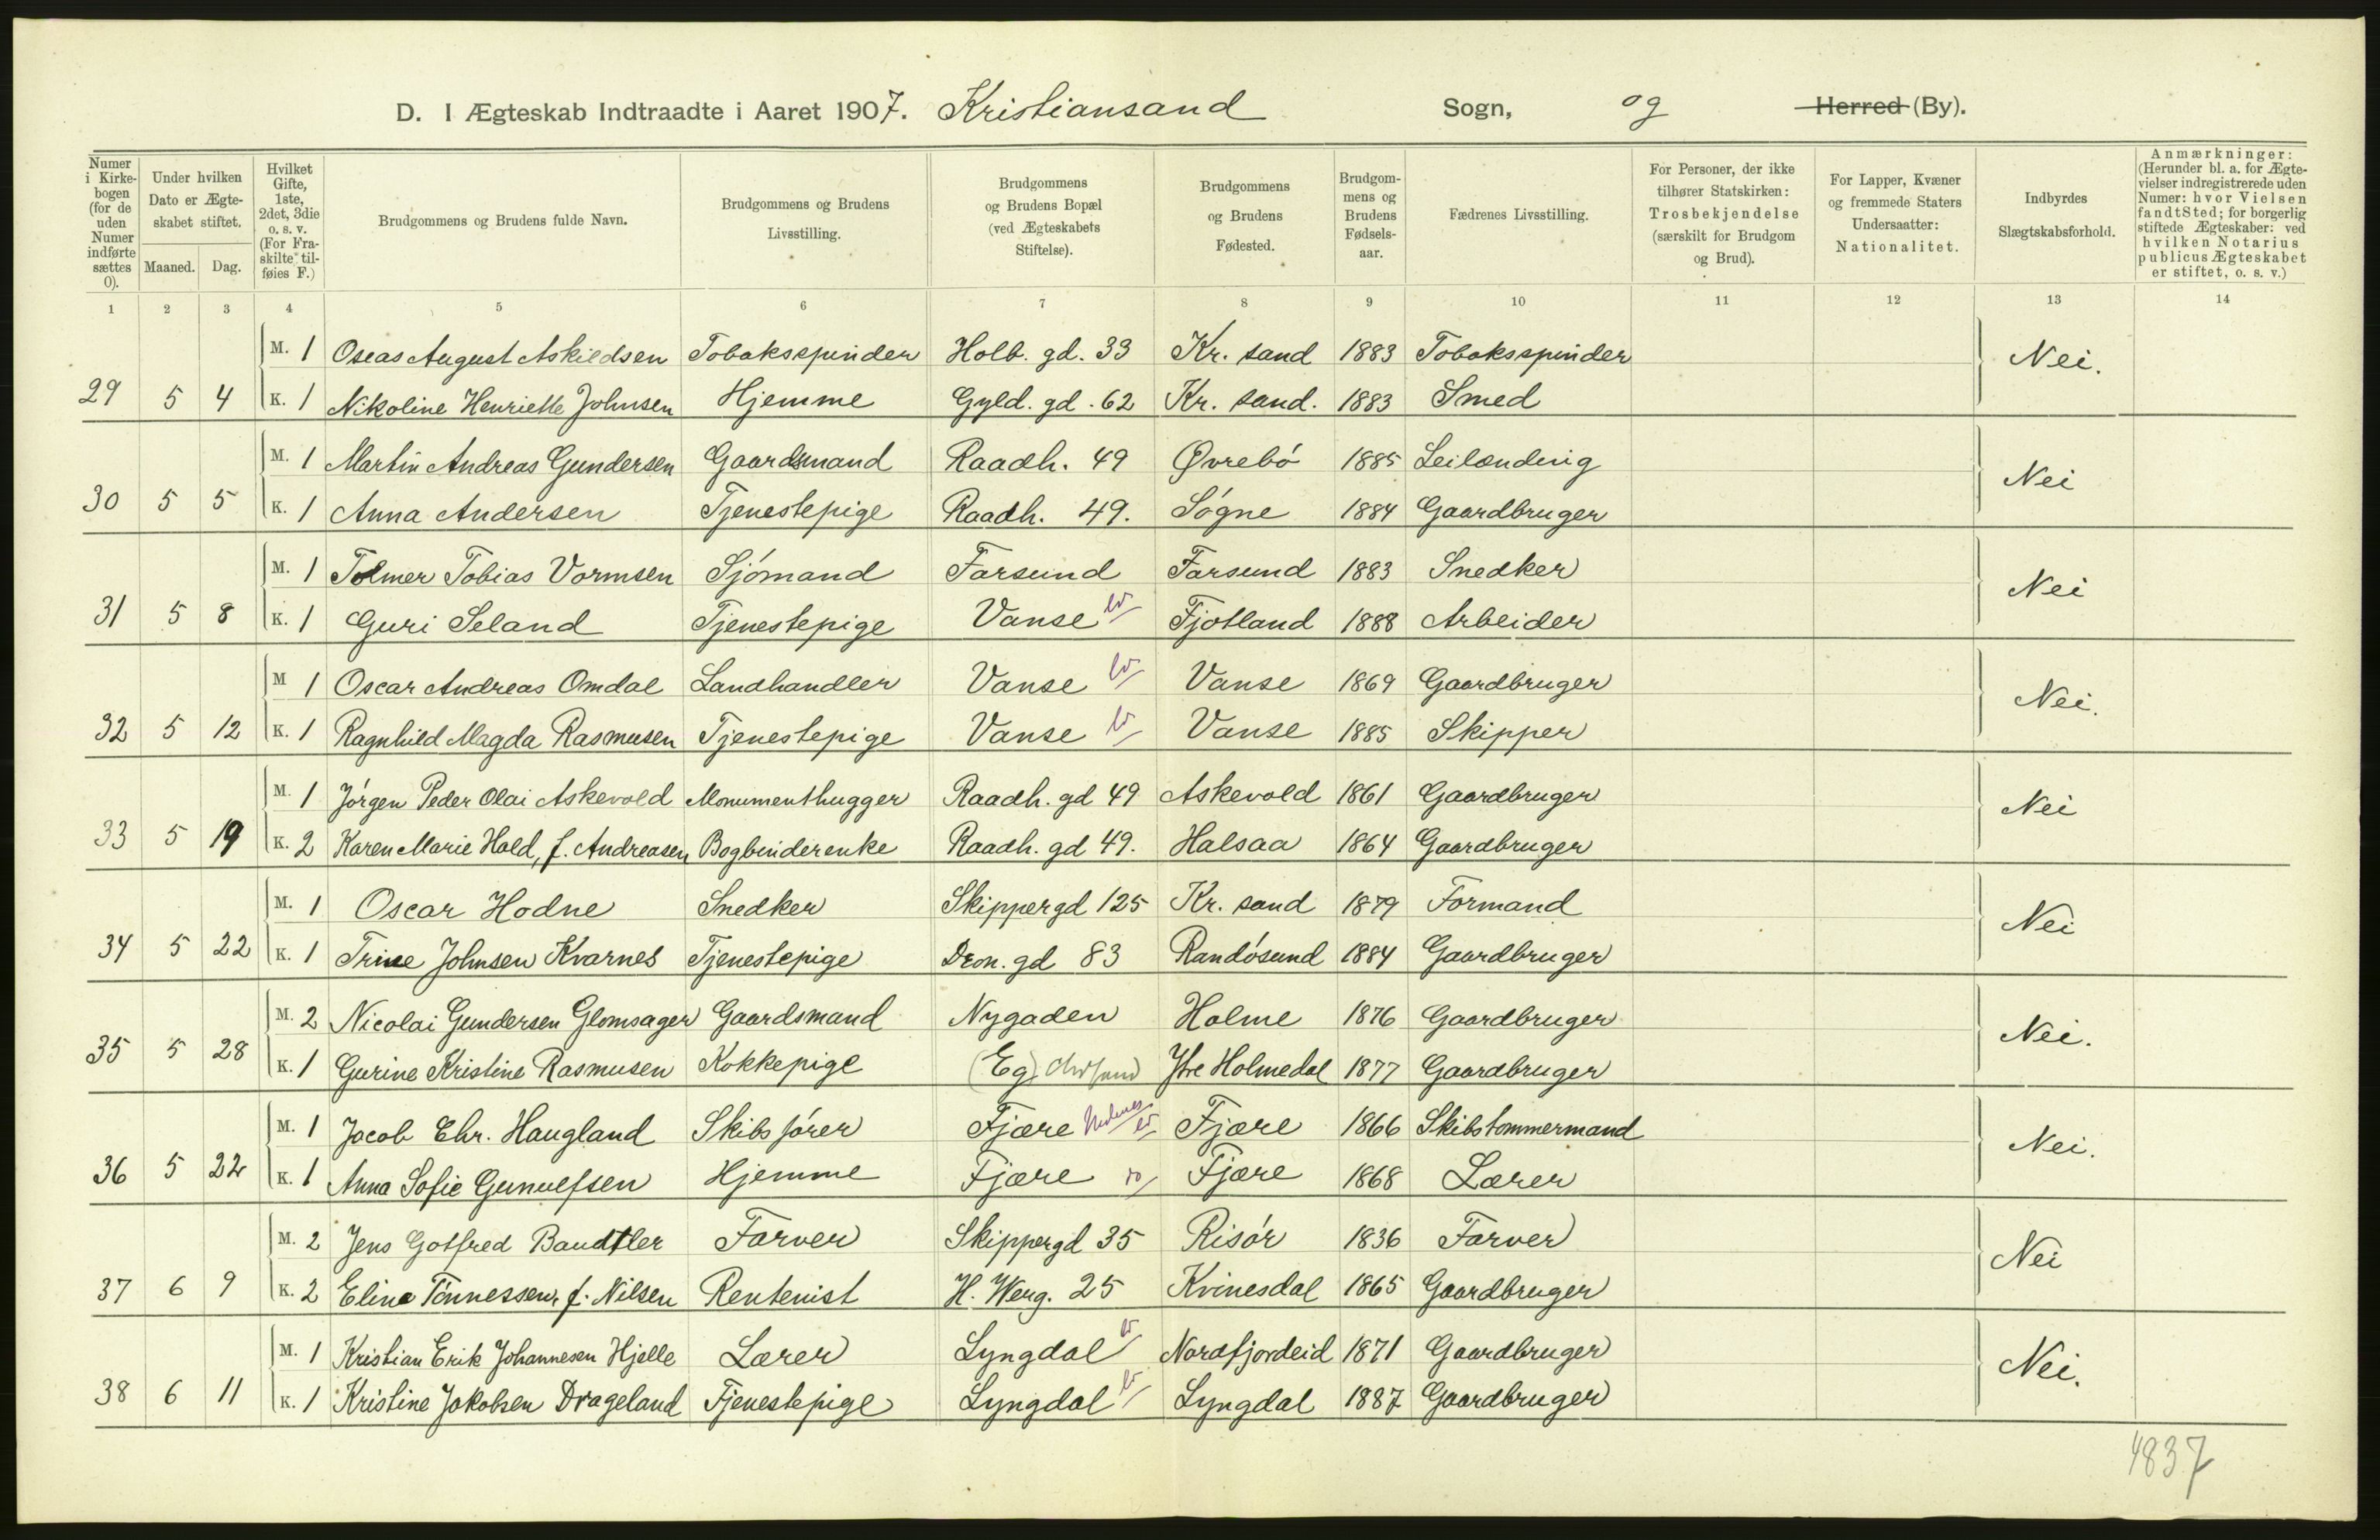 D. I Ægteskab Indtraadte i Aaret 1907. Kristiansand Sogn, og Herred (By).
Numer i Kirkebogen (for de uden Numer indførte sættes 0).
Under hvilken Dato er Ægteskabet stiftet.
Maaned. Dag.
Hvilket Gifte, 1ste, 2det, 3die o. s. v. (For Fraskilte tilføies F.)
Brudgommens og Brudens fulde Navn.
Brudgommens og Brudens Livsstilling.
Brudgommens og Brudens Bopæl (ved Ægteskabets Stiftelse).
Brudgommens og Brudens Fødested.
Brudgommens og Brudens Fødselsaar.
Fædrenes Livsstilling.
For Personer, der ikke tilhører Statskirken: Trosbekjendelse (særskilt for Brudgom og Brud).
For Lapper, Kvæner og fremmede Staters Undersaatter: Nationalitet.
Indbyrdes Slægtskabsforhold.
Anmærkninger: (Herunder bl. a. for Ægtevielser indregistrerede uden Numer: hvor Vielsen fandt Sted; for borgerlig stiftede Ægteskaber: ved hvilken Notarius publicus Ægteskabet er stiftet, o. s. v.)
1 2 3 4 5 6 7 8 9 10 11 12 13 14
M. 1 Oseas August Askildsen Tobaksspinder Holb. gd. 33 Kr. sand 1883 Tobaksspinder Nei.
29 5 4 K. 1 Nikoline Henriette Johnsen Hjemme Gyld. gd. 62 Kr. sand. 1883 Smed
M. 1 Martin Andreas Gundersen Gaardsmand Raadh. 49 Øvrebó 1885 Leilænding Nei
30 5 5 K. 1 Anna Andersen Tjenestepige Raadh. 49. Sógne 1884 Gaardbruger
M. 1 Tolmer Tobias Vormsen Sjómand Farsund Farsund 1883 Snedker Nei
31 5 8 K. 1 Guri Seland Tjenestepige Vanse Fjotland 1888 Arbeider
M 1 Oscar Andreas Omdal Landhandler Vanse Vanse 1869 Gaardbruger Nei.
32 5 12 K. 1 Ragnhild Magda Rasmusen Tjenestepige Vanse Vanse 1885 Skipper
M. 1 Jórgen Peder Olai Askevold Monumenthugger Raadh. gd 49 Askevold 1861 Gaardbruger Nei
33 5 19 K. 2 Karen Marie Hald, f. Andreasen Bogbinderenke Raadh. gd 49. Halsaa 1864 Gaardbruger
M. 1 Oscar Hodne Snedker Skippergd 125 Kr. sand 1879 Formand Nei
34 5 22 K. 1 Trine Johnsen Kvarnes Tjenestepige Dron. gd 83 Randósund 1884 Gaardbruger
M. 2 Nicolai Gundersen Glomsager Gaardsmand Nygaden Holme 1876 Gaardbruger Nei.
35 5 28 K. 1 Gurine Kristine Rasmusen Kokkepige (Eg) Chrsand Ytre Holmedal 1877 Gaardbruger
M. 1 Jacob Chr. Haugland Skibsfórer Fjære Nedenes Fjære 1866 Skibstømmermand Nei.
36 5 22 K. 1 Anna Sofie Gunuefsen Hjemme Fjære Fjære 1868 Lærer
M. 2 Jens Gotfred Bandtler Farver Skippergd 35 Risór 1836 Farver Nei
37 6 9 K. 2 Eline Tónnessen, f. Nilsen Rentenist H. Werg. 25 Kvinesdal 1865 Gaardbruger
M. 1 Kristian Erik Johannesen Hjelle Lærer Lyngdal Nordfjordeid 1871 Gaardbruger Nei.
38 6 11 K. 1 Kristine Jakobsen Drageland Tjenestepige Lyngdal Lyngdal 1887 Gaardbruger
4837